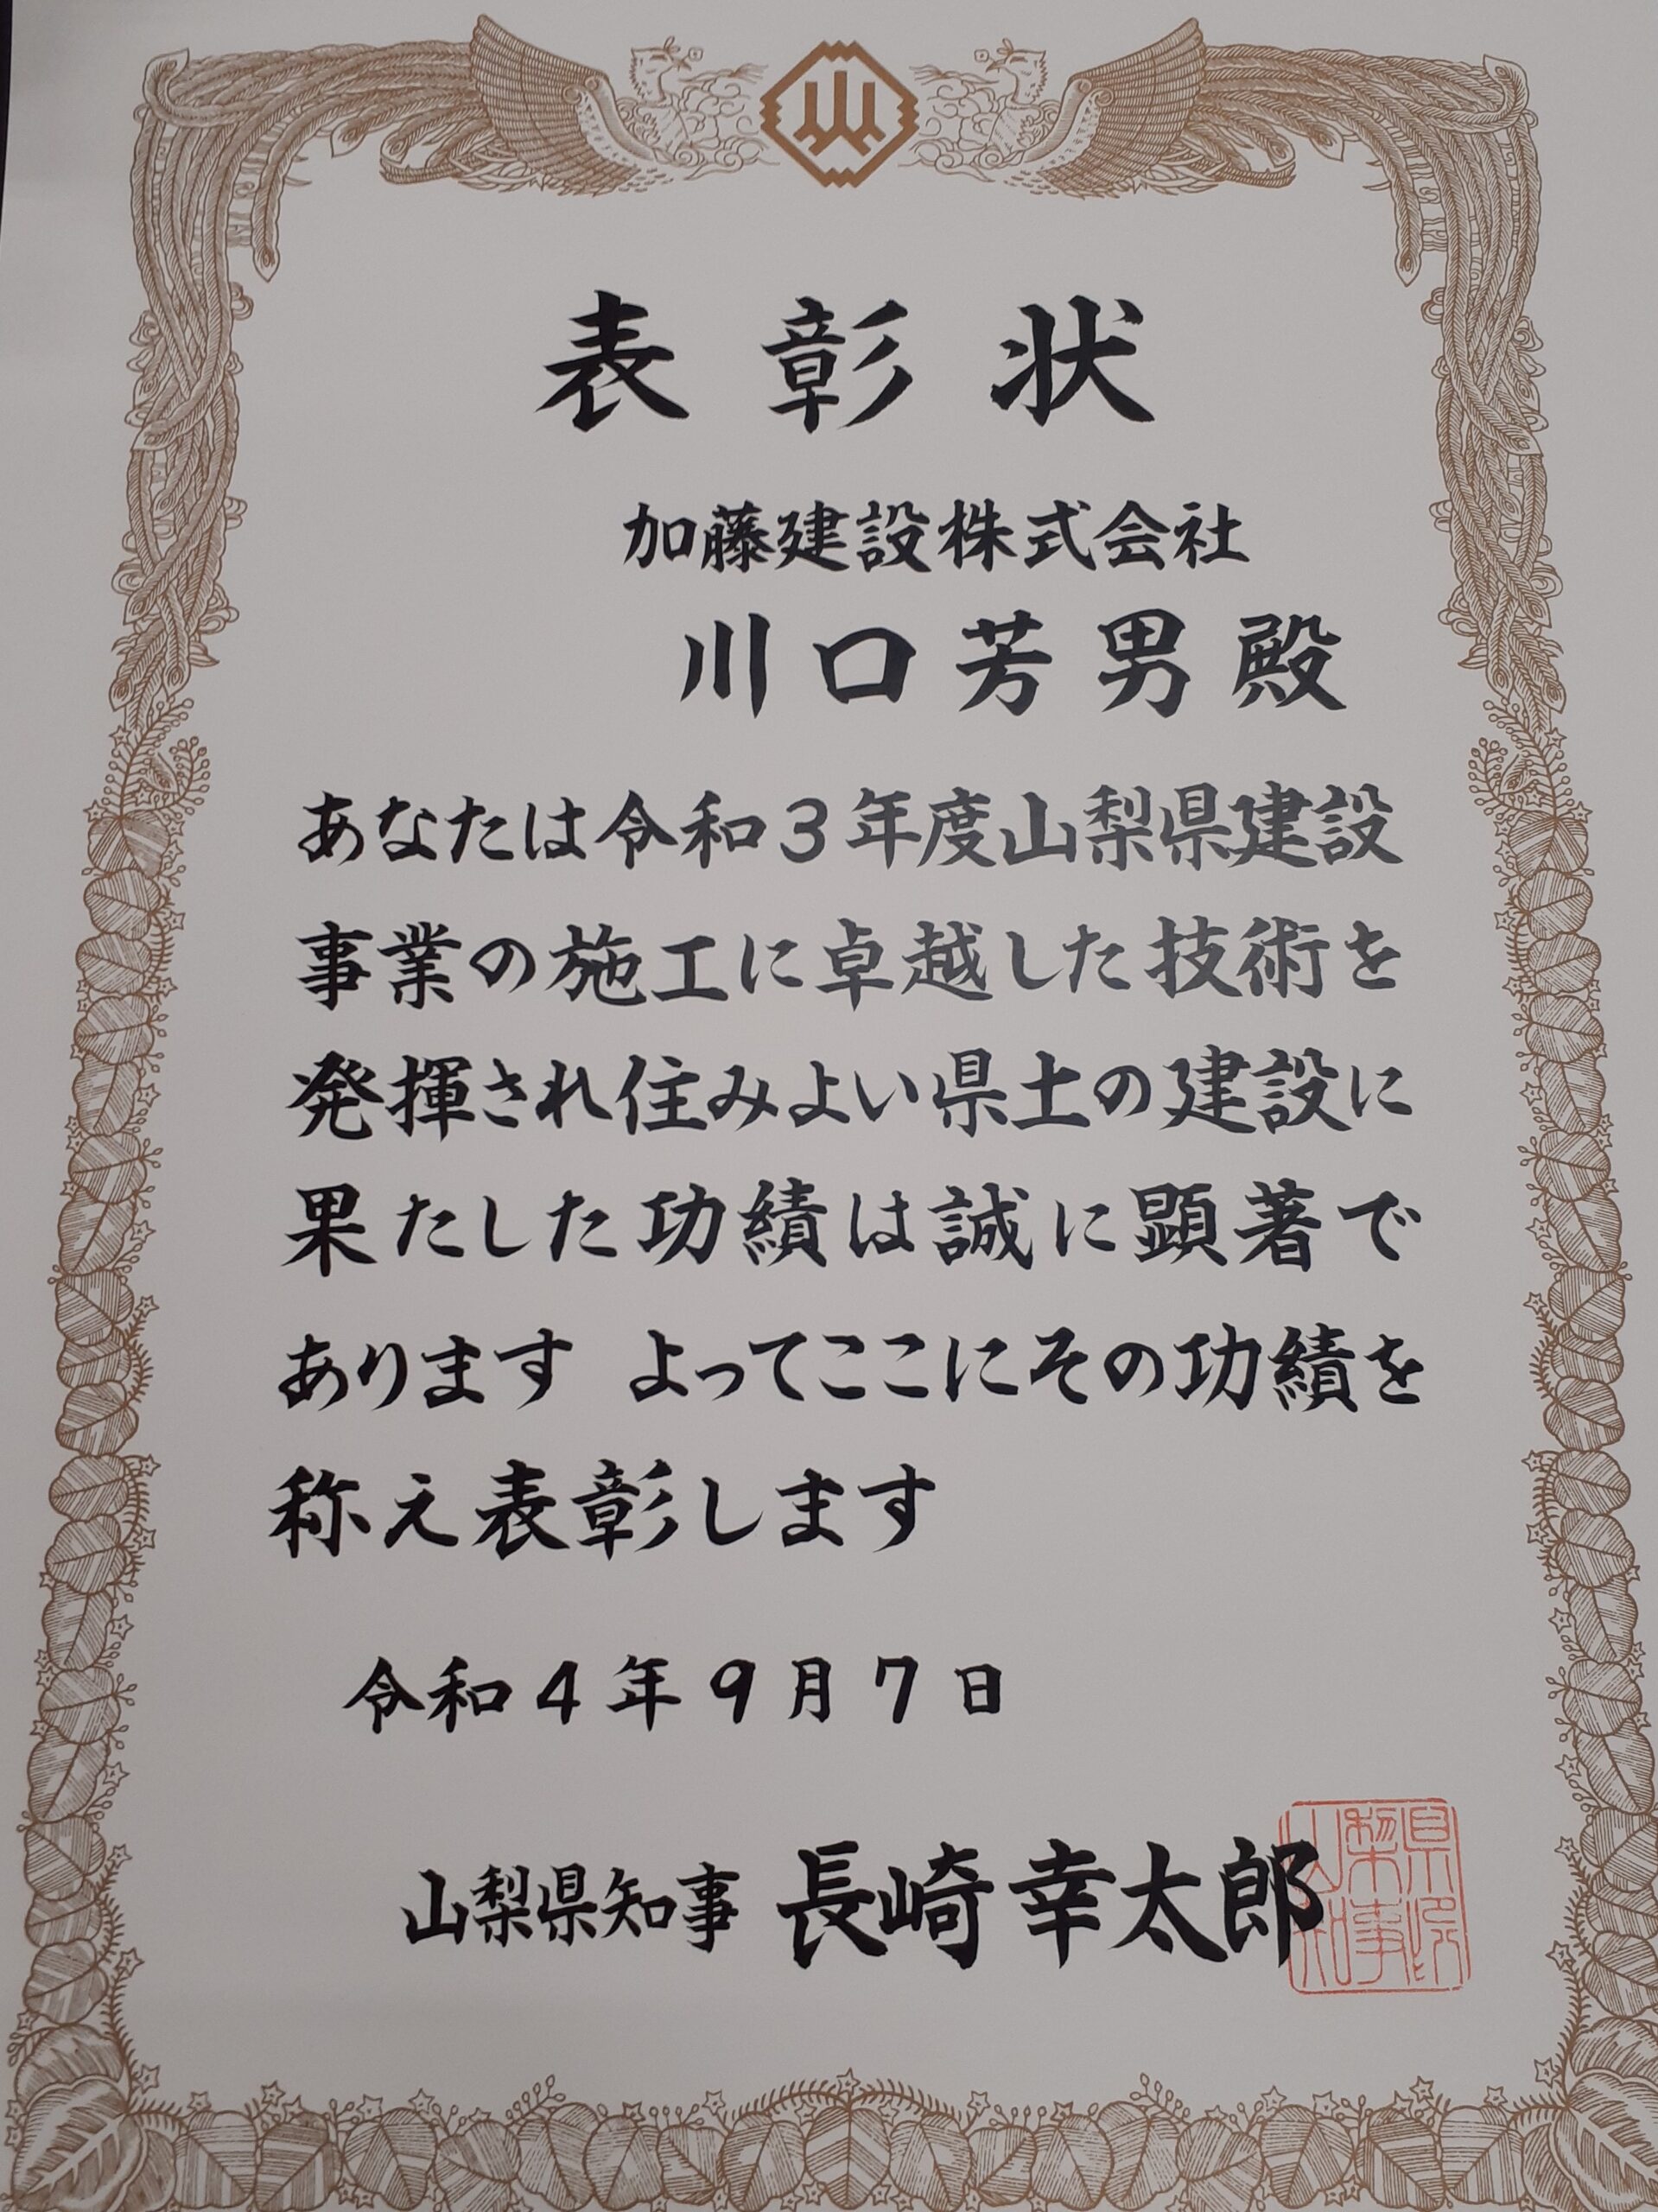 表彰状
加藤建設株式会社
川口芳男殿
あなたは令和3年度山梨県建設
事業の施工に卓越した技術を
発揮され住みよい県土の建設に
果たした功績は誠に顕著で
あります よってここにその功績を
称え表彰します
令和4年9月7日
山梨県知事 長崎幸太郎